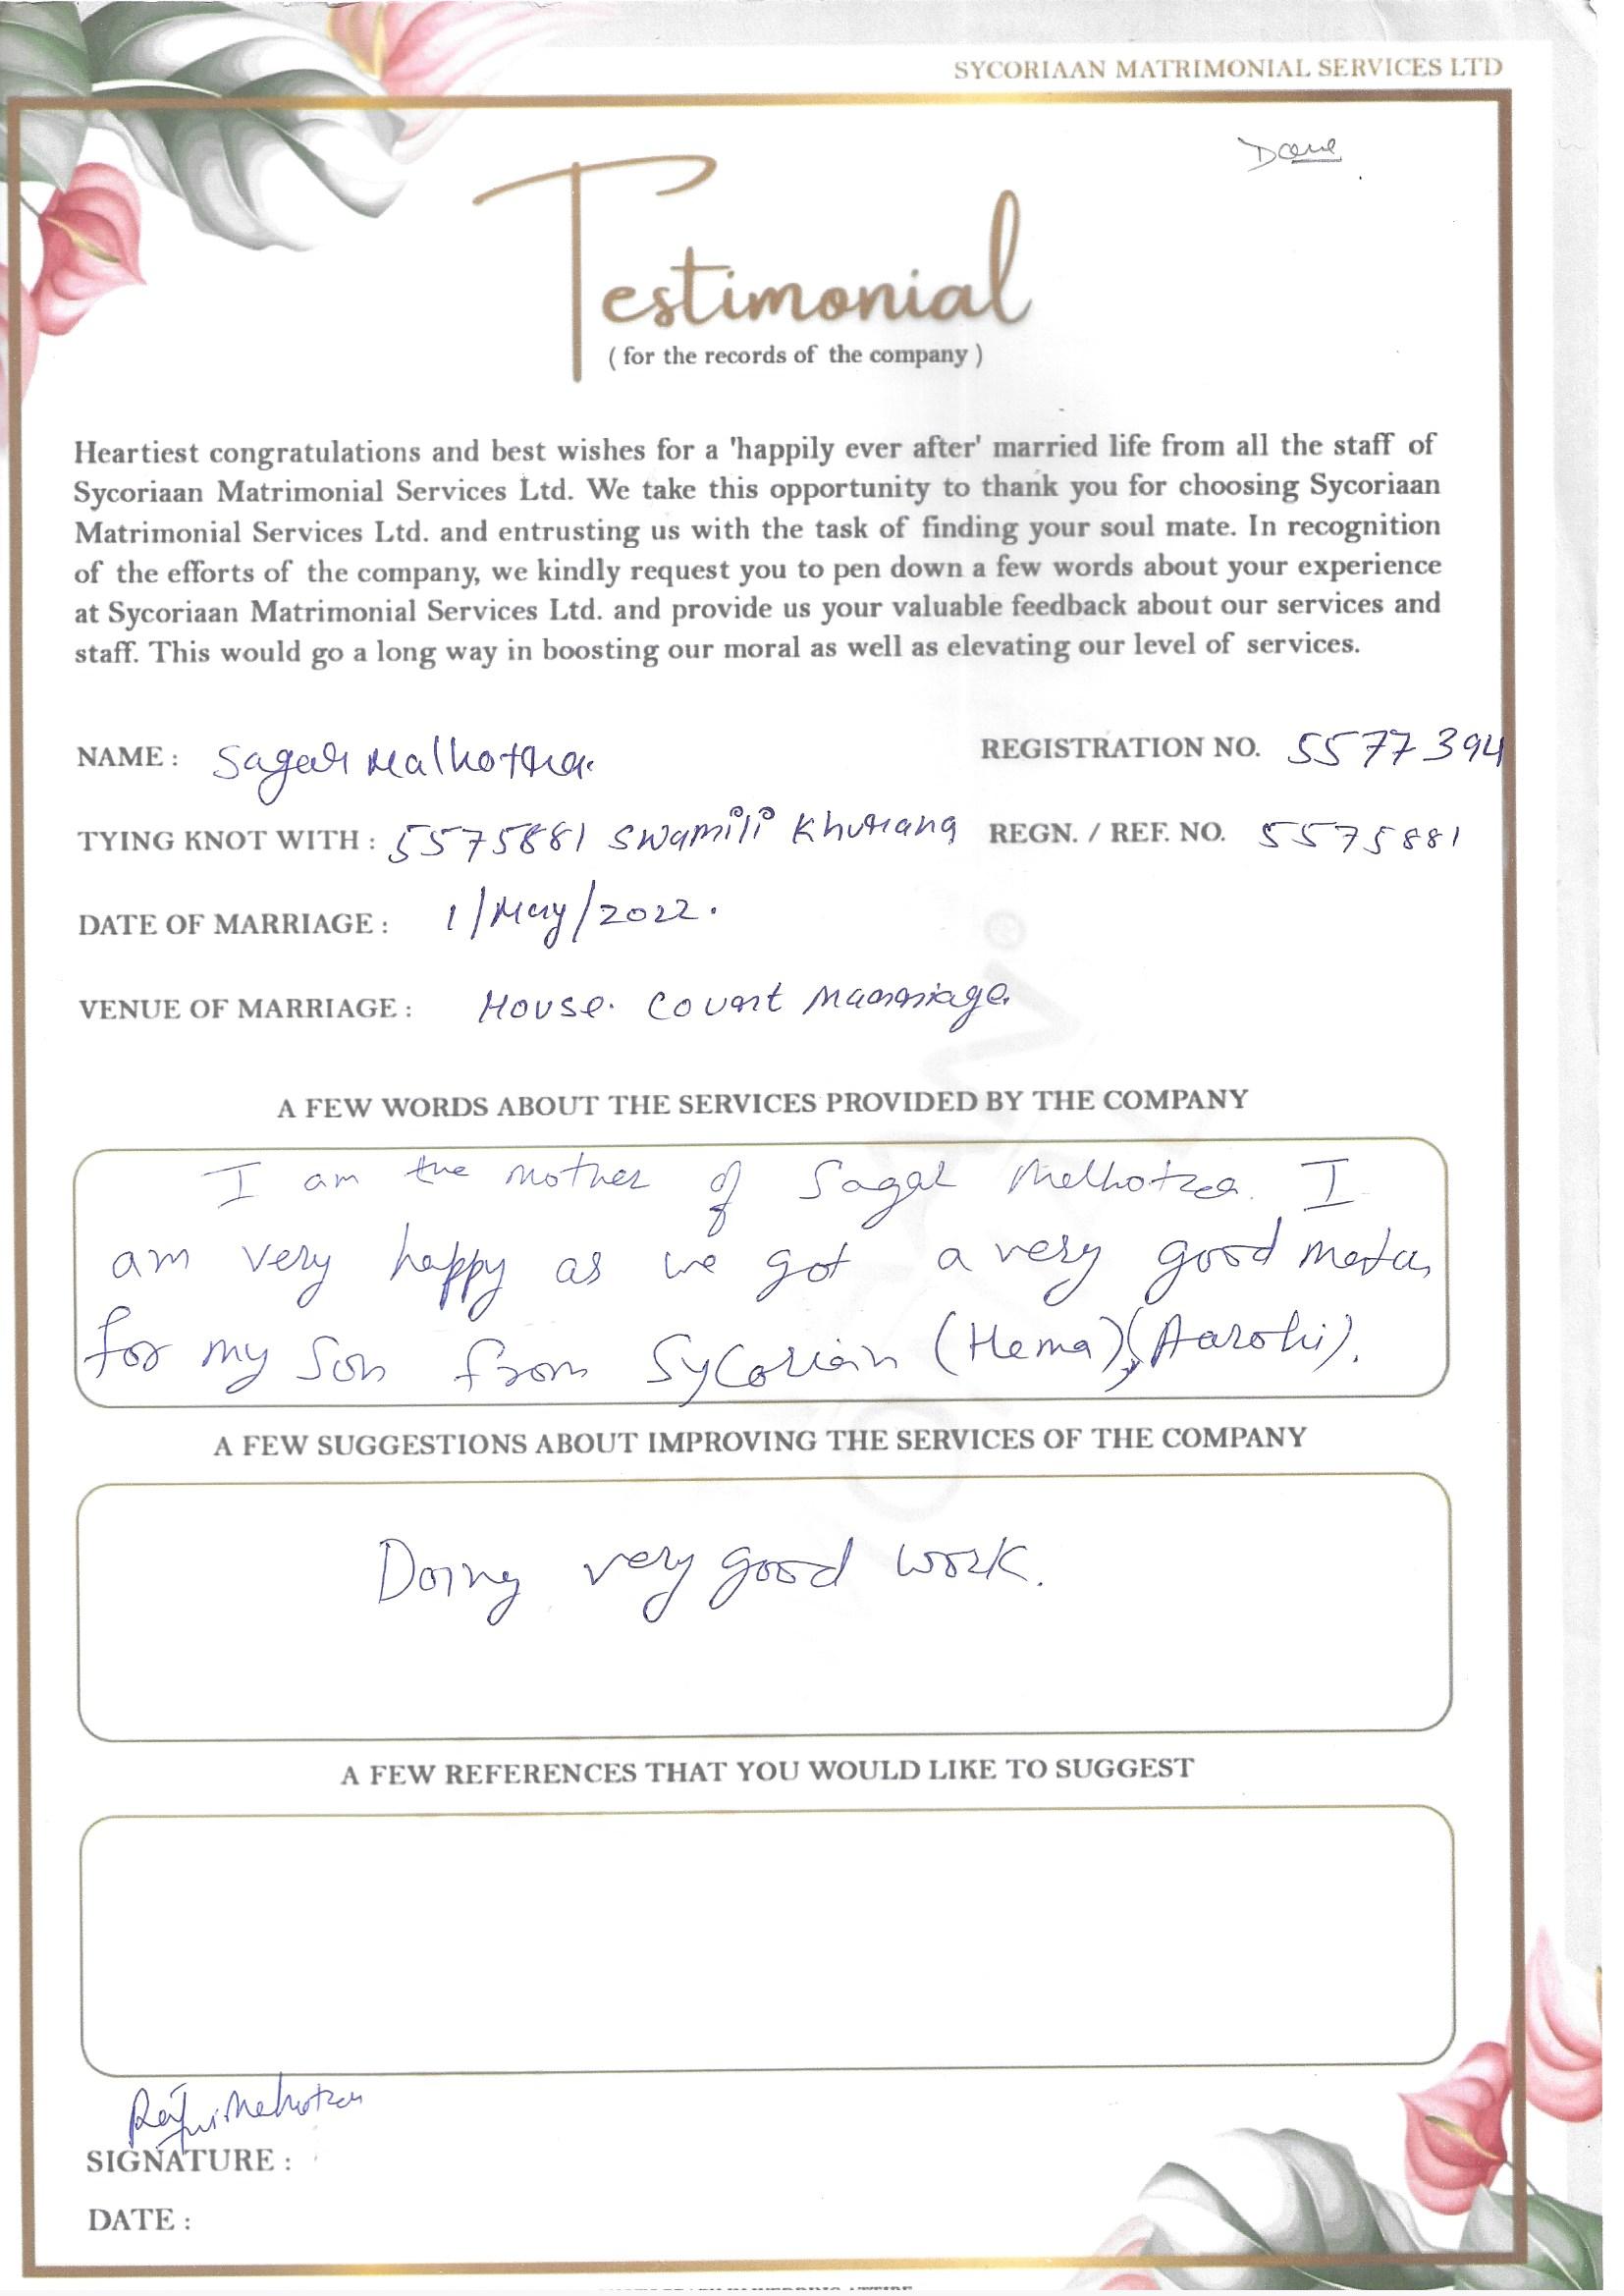 SYCORIAAN MATRIMONIAL SERVICES LTD
Done
Testimonial
( for the records of the company )
Heartiest congratulations and best wishes for a 'happily ever after' married life from all the staff of
Sycoriaan Matrimonial Services Ltd. We take this opportunity to thank you for choosing Sycoriaan
Matrimonial Services Ltd. and entrusting us with the task of finding your soul mate. In recognition
of the efforts of the company, we kindly request you to pen down a few words about your experience
at Sycoriaan Matrimonial Services Ltd. and provide us your valuable feedback about our services and
staff. This would go a long way in boosting our moral as well as elevating our level of services.
NAME : Sagar Malhotra. REGISTRATION NO. 5577394
TYING KNOT WITH : 5575881 Swamili Khurana REGN. / REF. NO. 5575881
DATE OF MARRIAGE : 1/May/2022.
VENUE OF MARRIAGE : House. Court Marriage
A FEW WORDS ABOUT THE SERVICES PROVIDED BY THE COMPANY
I am the mother of Sagar Malhotra. I
am very happy as we got a very good
for my son from Sycoriain (Hema), (Aarohi).
A FEW SUGGESTIONS ABOUT IMPROVING THE SERVICES OF THE COMPANY
Doing very good work.
A FEW REFERENCES THAT YOU WOULD LIKE TO SUGGEST
Malhotra
SIGNATURE :
DATE :